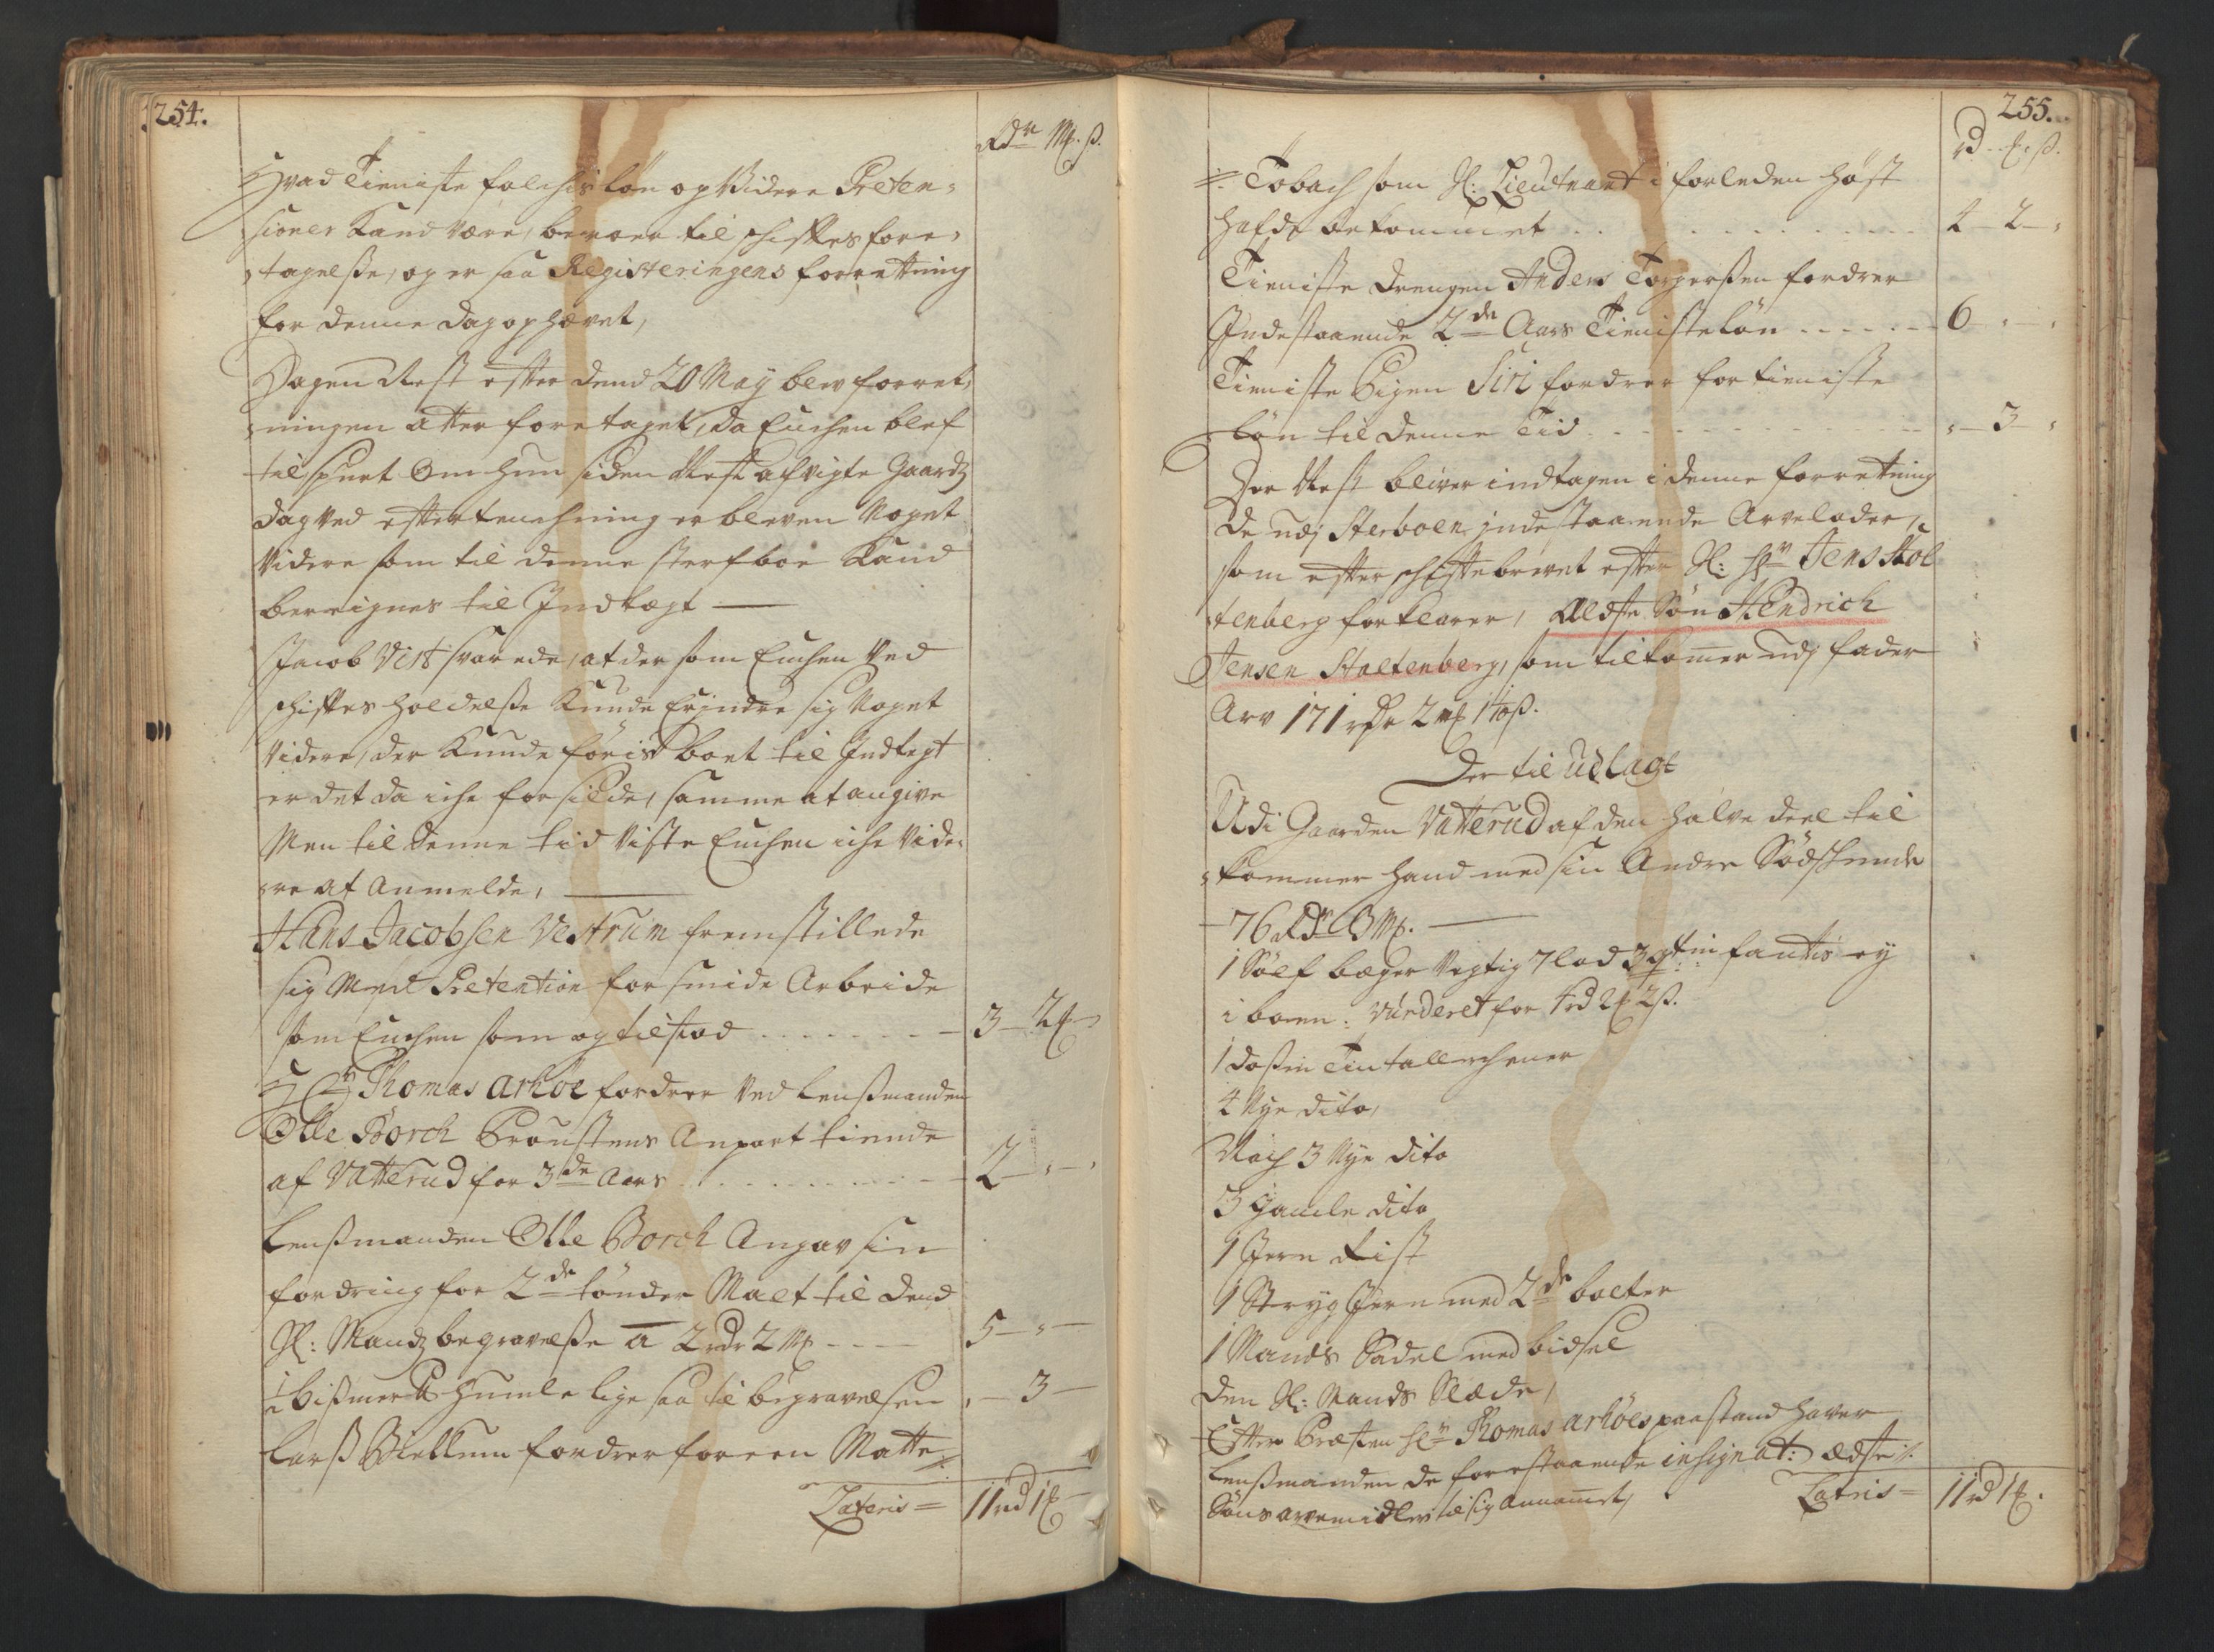 254.
Rdr Mk. ß.
Hvad Tieniste folchis løn og Videre Preten-
sioner Kand være, beroer til schiftes fore-
tagelße, og er saa Registeringens forretning
for denne dag ophævet,
Dagen Nest efter dend 20 Maÿ blev forret-
ningen atter foretaget, da Enchen blef
tilspurt Om hun siden Nest afvigte Gaards
dag ved eftertenchning er bleven Noget
Videre som til denne sterfboe Kand
beregnes til Indtægt —
Jacob Vist svarede, at der som Enchen Ved
schiftes holdelße Kunde Erindre sig Noget
Videre, der Kunde føris boet til Indtegt
er det da iche for silde, samme at angive
Men til denne tid Viste Enchen iche Vide-
re at Anmelde, —
Hans Jacobsen Vestrum fremstillede
sig Med Pretention for smide Arbeide
som Enchen som og tilstod . . . . . . . 3 – 2 –
Hr Thomas Arhoe fordrer Ved Lenßmanden
Olle Borch Proustens Anpart tiende
af Vatterud for 3de Aars . . . . . . 2 – " – "
Lenßmanden Olle Borch Angav sin
fordring for 2de tønder Malt til dend
Sl: Mands begravelße a 2 rdr 2 Mk - - - 5 – " –
1 bißmerpd Humle lige saa til begravelsen " – 3 –
Larß Biellum fordrer for een Matte
Lateris = 11 rd 1 –
255.
rd. . ß.
Toback som Sl: Lieutnant i forleden høst
hafde bekommet . . . . . . . . . 2 – "
Tieniste drengen Anders Torgerßen fordrer
Indestaaende 2de Aars Tieniste løn - - - - - 6 " "
Tieniste Pigen Siri fordrer for tieniste
løn til denne Tid . - - - - - - - " – 3 – "
Der Nest bliver indtagen i denne forretning
de udj Sterboen jndestaaende Arvelader,
som efter schiftebrevet efter Sl: Hr Jens Stol
tenberg forklarer, Aldste Søn Hendrich
Jensen Stoltenberg, som tilkommer udj fader
Arv 171 rdr 2 mk ß.
Der til Udlagt
Udi Gaarden Vatterud af den halve deel til
kommer hand med sin Andre Sødskende
– 76 Rdr 3 Mk. —
1 Sølf bæger Vegtig 7 lod 3 qt: fantis ey
i boen: Vurderet for 4 rd 2 ß.
1 dosin Tintallerchener
4 Nye dito,
Noch 3 Nye dito
3 gamle dito
1 Jern Rist
1 StrygJern med 2de bolter
1 Mands Sadel med bidsel
den Sl: Mands Slæde,
Efter Præsten Hr Thomas Arhoes paastand haver
Lenßmanden de forestaaende insignat: ædste
Søns arvemidler til sig annammet,
Latris = 11 rd 1 .